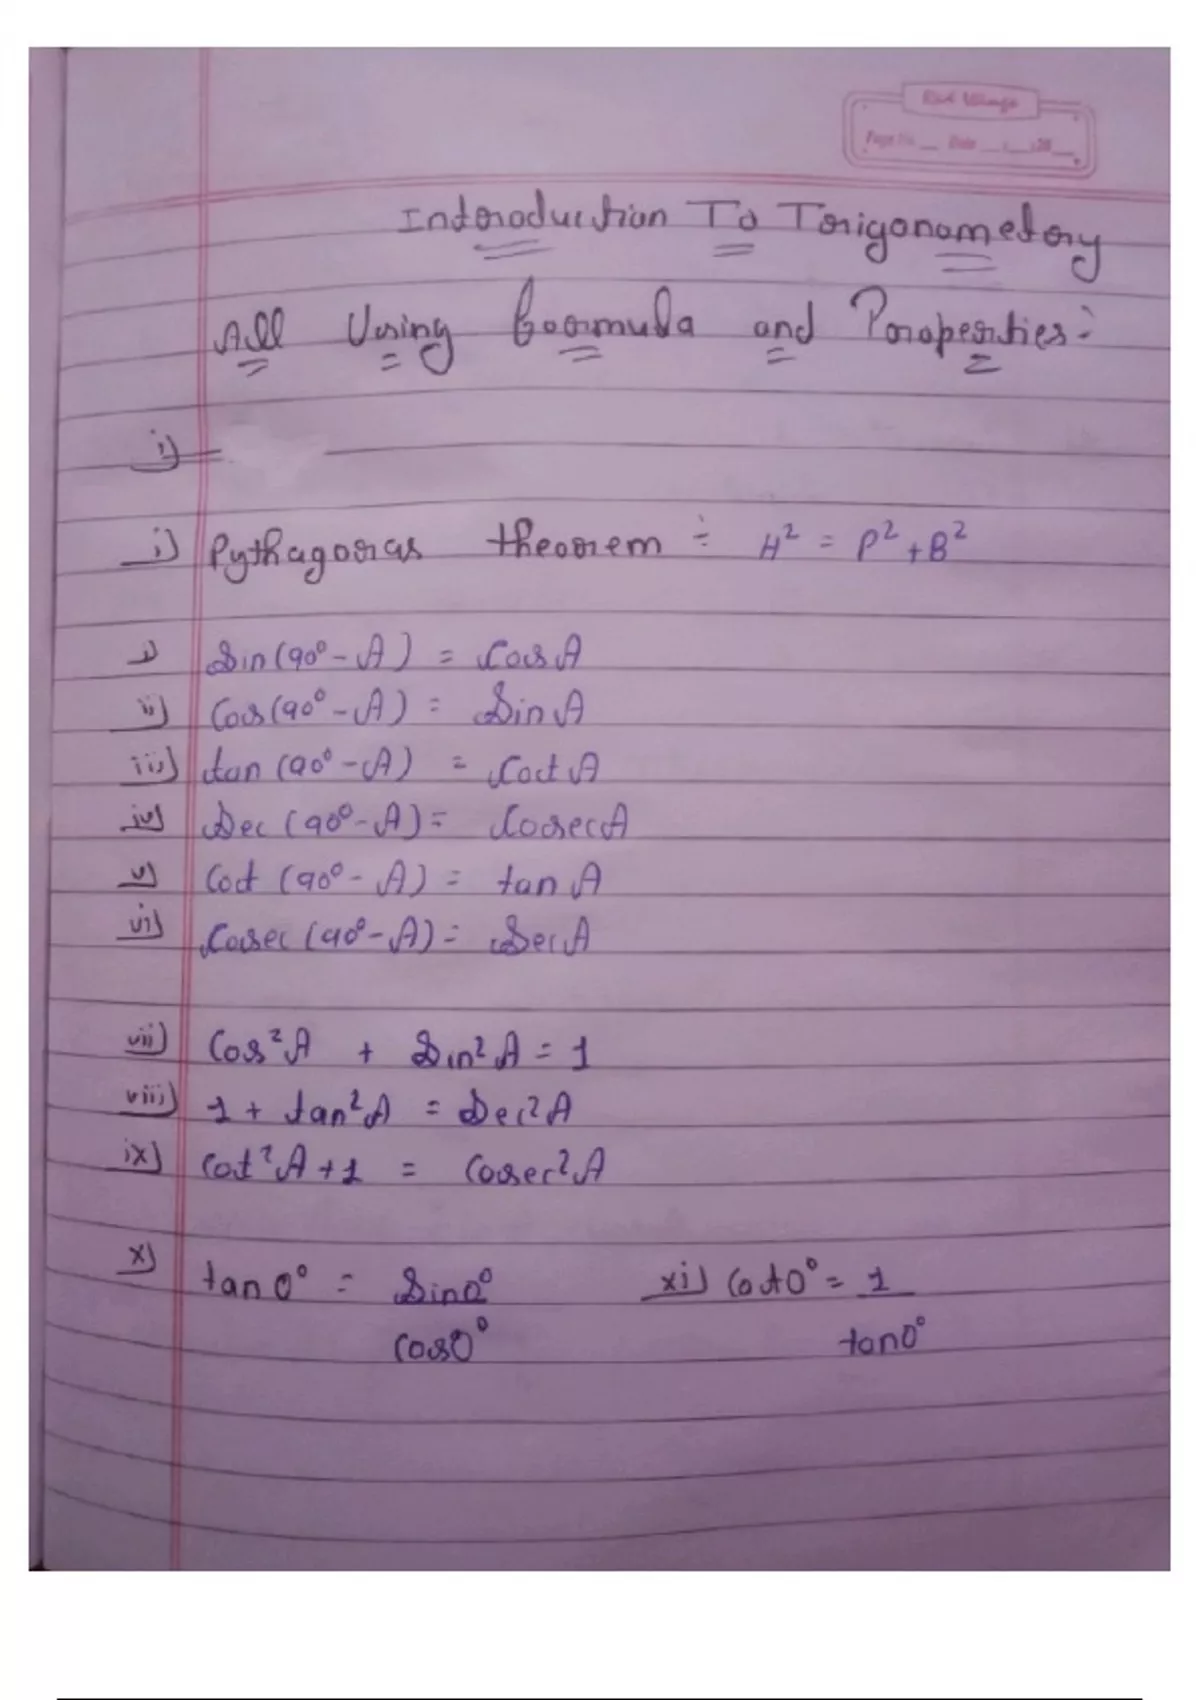 Page No Date
Introduction To Trigonometry
All Using formula and Properties:-
i)
i) Pythagoras theorem ÷ H² = P²+B²
i) Sin(90°-A) = Cos A
ii) Cos(90°-A) = Sin A
iii) tan (90°-A) = Cot A
iv) Sec (90°-A) = Cosec A
v) Cot (90°-A) = tan A
vi) Cosec (90°-A) = Sec A
vii) Cos²A + Sin²A = 1
viii) 1 + tan²A = Sec²A
ix) Cot²A+1 = Cosec²A
x) tan 0° = Sin0° xi) Cot0° = 1
Cos0° tan0°